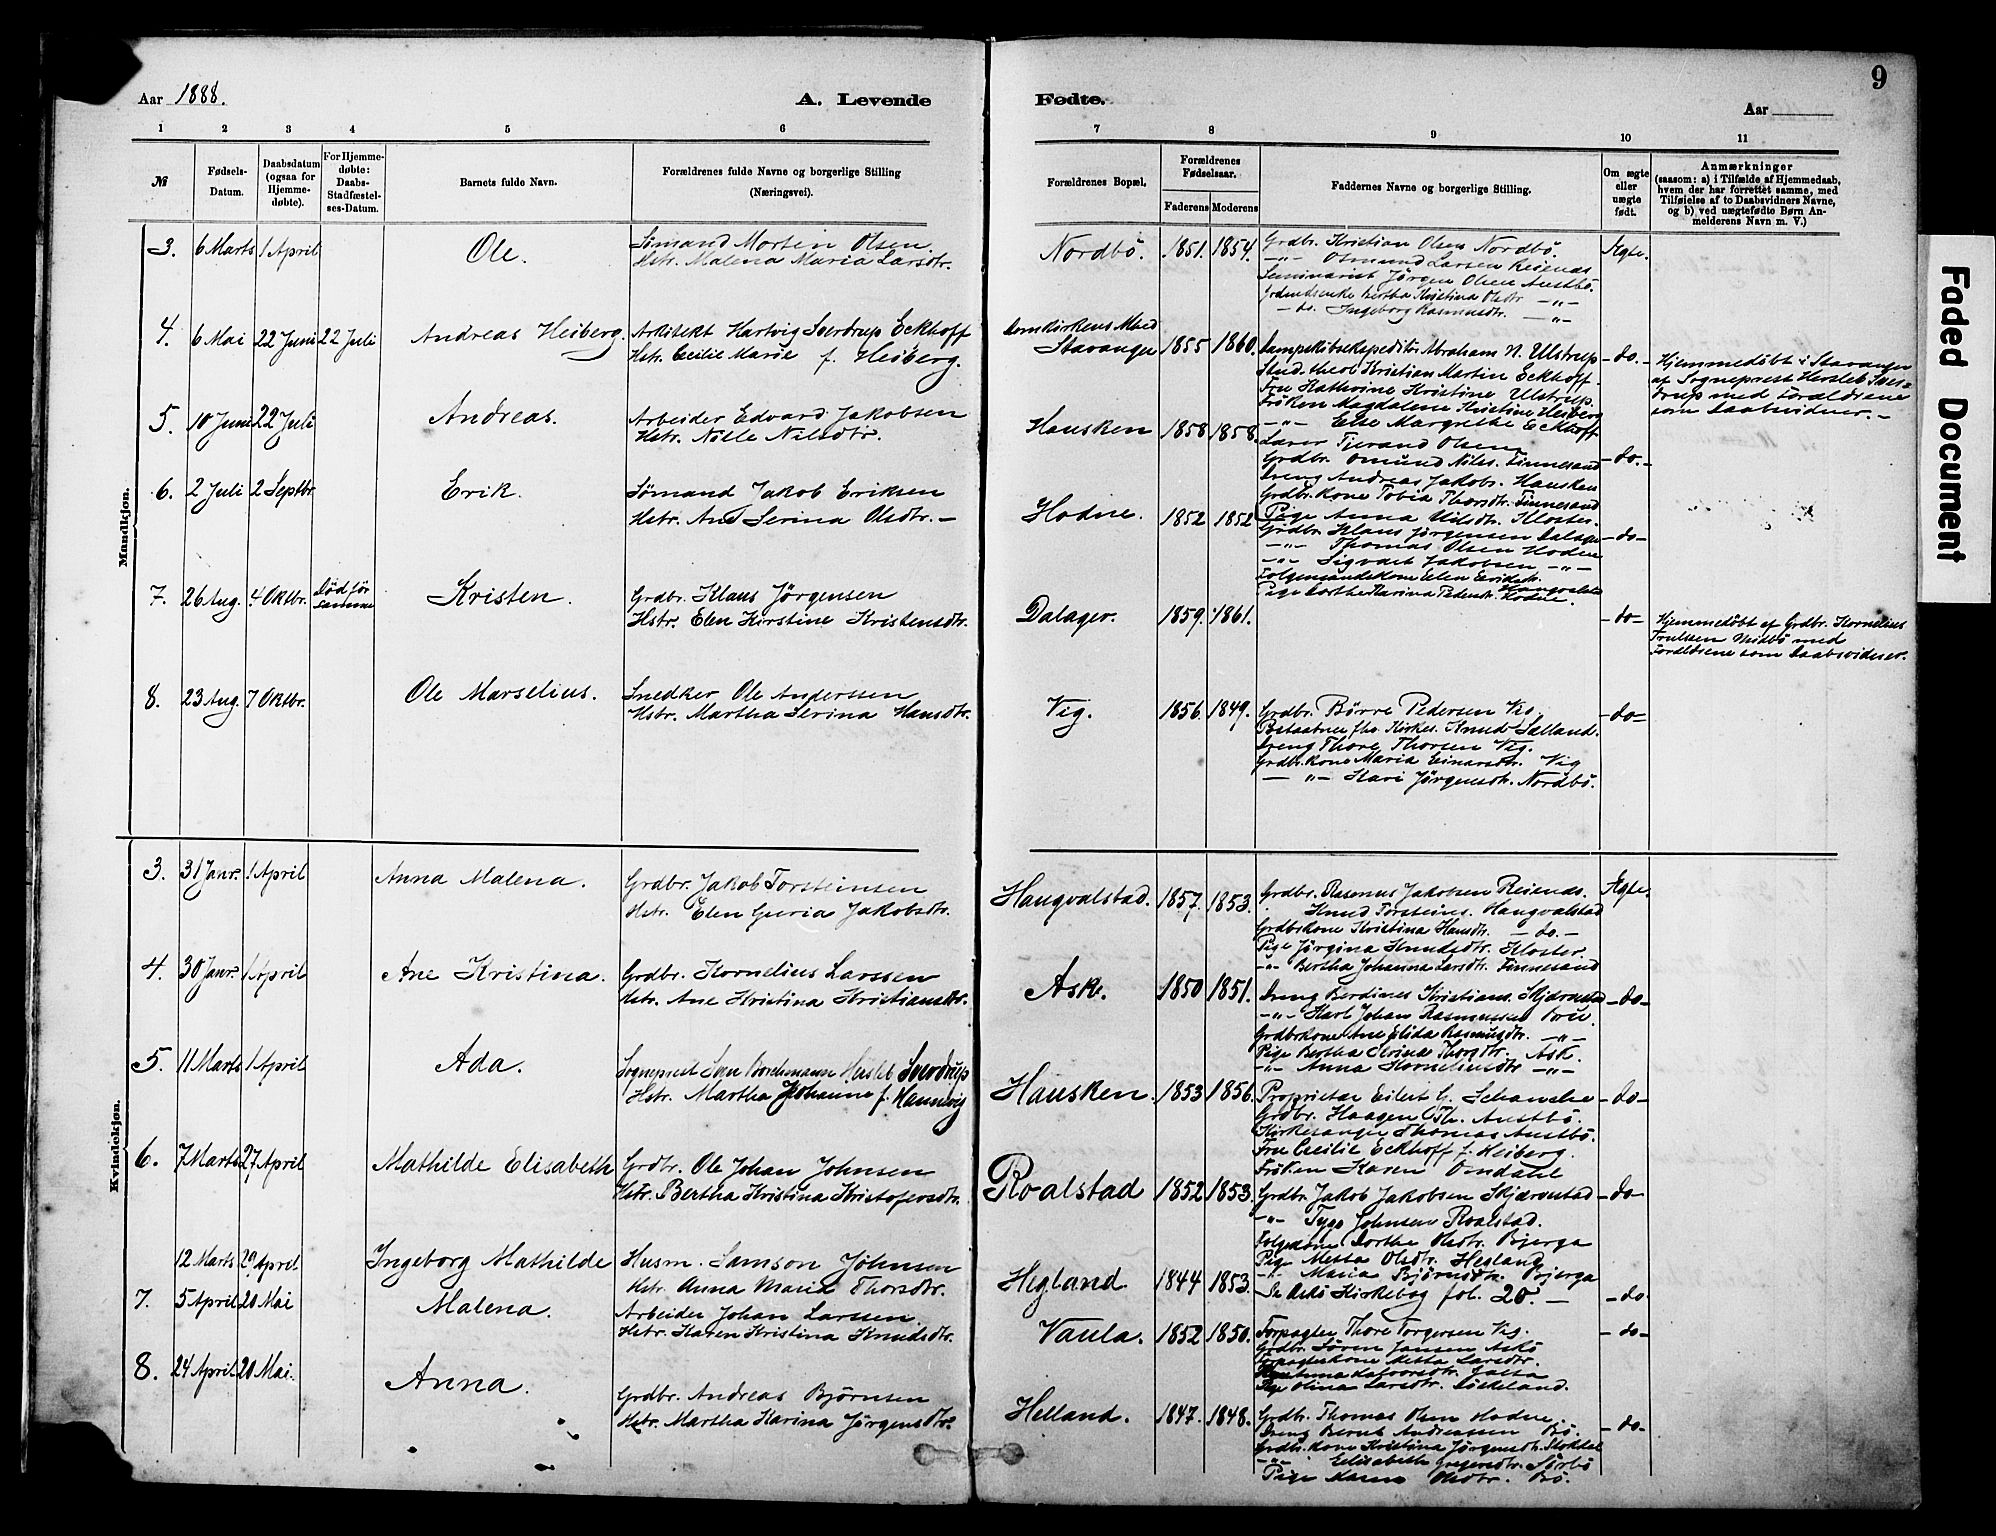 Aar 1888.
A. Levende Fødte.
9
Aar
1 2 3 4 5 6 7 8 9 10 11
№
Fødsels-Datum.
Daabsdatum (ogsaa for Hjemme-døbte).
For Hjemme-døbte: Daabs-Stadfæstel-ses-Datum.
Barnets fulde Navn.
Forældrenes fulde Navne og borgerlige Stilling (Næringsvei).
Forældrenes Bopæl.
Forældrenes Fødselsaar.
Faderens Moderens
Faddernes Navne og borgerlige Stilling.
Om ægte eller uægte født.
Anmærkninger
(saasom: a) i Tilfælde af Hjemmedaab, hvem der har forrettet samme, med Tilføielse af to Daabsvidners Navne, og b) ved uægtefødte Børn Anmelderens Navn m. V.)
Mandkjøn.
3. 6 Marts 1 April Ole. Sømand Morten Olsen
Hstr. Malena Maria Larsdtr.
Nordbö. 1851. 1854. Ægte.
Grdbr. Kristian Olsen Nordbö.
-"- Osmund Larsen Reienes
Seminarist Jörgen Olsen Austbö.
Bertha Kristina Olsdtr. -"-
do. Ingeborg Rasmusdtr. -"-
4. 6 Mai 22 Juni 22 Juli Andreas Heiberg. Arkitekt Hartvig Sverdrup Eckhoff
Hstr. Cecilie Marie f. Heiberg.
Domkirkens
Stavanger 1855 1860. -do.-
Dampskibsekspeditör Abraham N. Ulstrup
Stud. theol. Kristian Martin Eckhoff.
Fru Kathrine Kristine Ulstrup.
Fröken Magdalene Kristine Heiberg
-"- Else Margrethe Eckhoff
Hjemmedöbt i Stavanger
af Sogneprest Hersleb Sver=
drup med Forældrene
som Daabsvidner.-
5. 10 Juni 22 Juli Andreas. Arbeider Edvard Jakobsen
Hstr. Nille Nilsdtr.
Hausken 1858 1858. -do.-
Lærer Tjerand Olsen
Grdbr. Omund Nils. Finnesand
Dreng Andreas Jakobs. Hausken
Grdbr.kone Tobia Thorsdtr. Finnesand
Pige Anna Nilsdtr. Kloster.
6. 2 Juli 2 Septbr. Erik. Sömand Jakob Eriksen
Hstr. Ane Serina Olsdtr.-
Hodne. 1852 1852 -do-
Grdbr. Klaus Jörgensen Dalager
-"- Thomas Olsen Hodne
-"- Sigvart Jakobsen -"-
Elen
Pige Dorthe Karina Pedersdtr. Hodne.
7. 26 Aug. 4 Oktbr. Död før samme Kristen. Grdbr. Klaus Jørgensen
Hstr. Elen Kirstine Kristensdtr.
Dalager. 1859. 1861. -do-
Hjemmedöbt af Grdbr. Kornelius
Midbö med
Forældrene som Daabsvidner.
8. 23 Aug. 7 Oktbr. Ole Marselius. Snedker Ole Anderssen
Hstr. Martha Serina Hansdtr.
Vig. 1856. 1849. -do-
Grdbr. Börre Pedersen
Knud Salland.
Dreng Thore Thorsen Vig.
Grdbr.kone Maria Einarsdtr. Vig
-"- Kari Jörgensdtr. Nordbö.
Kvindekjøn.
3. 31 Janr. 1 April Anna Malena. Grdbr. Jakob Torsteinsen
Hstr. Elen Guria Jakobsdtr.
Haugvalstad. 1857. 1853. Ægte.
Grdbr. Rasmus Jakobsen Reienes.
Knud Torsteins. Haugvalstad
Grdbrkone Kristina Hansdtr. -do.-
Pige Jörgina Knudsdtr. Kloster.
-"- Bertha Johanna Larsdtr. Finnesand
4. 30 Janr. 1 April Ane Kristina. Grdbr. Kornelius Larssen
Hstr. Ane Kristina Kristiansdtr.
Ask. 1850 1851. -do-
Dreng Berdines Kristians.
-"- Karl Johan Rasmussen
Grdbrkone Ane Elida Rasmusdtr. -"-
Pige Bertha Serina Thorsdtr. Ask.
-"- Anna Korneliusdtr -"-
5. 11 Marts 1 April Ada. Sogneprest Sven Borchmann Hersleb Sverdrup
Hstr. Martha Johanne f. Hannevig
Hausken. 1853 1856. -do-
Proprietær Eilert G. Schanche
Grdbr. Haagen Th. Austbö.
Kirkesanger Thomas Austbö.
Fru Cecilie Eckhoff f. Heiberg.
Fröken Karen Omdahl
6. 7 Marts 27 April Mathilde Elisabeth Grdbr. Ole Johan Johnsen
Hstr. Bertha Kristina Kristofersdtr.
Roalstad 1852 1853. -do-
Grdbr. Jakob Jakobsen
-"- Johnsen Roalstad.
Dorthe Olsdtr. Bjerga
Pige Metta Olsdtr. Hegland
-"- Maria Björnsdtr. Bjerga
12 Marts 29 April Ingeborg Mathilde Husm. Samson Johnsen
Hstr. Anna Maria Thorsdtr.
Hegland 1844 1853. -do
Se Askö Kirkebog fol. 20.-
7. 5 April 20 Mai Malena. Arbeider Johan Larssen.
Hstr. Karen Kristina Knudsdtr.
Vaula. 1852 1850. -do-
Forpagter Thore Torgersen Vig.
Grdbr. Sören Jansen Askö
Forpagterkone Metta Larsdtr.
Pige Olina Larsdtr.
8. 24 April 20 Mai. Anna. Grdbr. Andreas Bjørnsen
Hstr. Martha Karina Jørgensdtr.
Helland. 1847. 1848. -do-
Grdbr. Thomas Olsen Hodne.
Dreng Bernt Andreassen Bö.
Grdbr.kone Kristina Jørgensdtr.
-"- Elisabeth Sörbö
Pige Olsdtr. Bö.
Faded Document